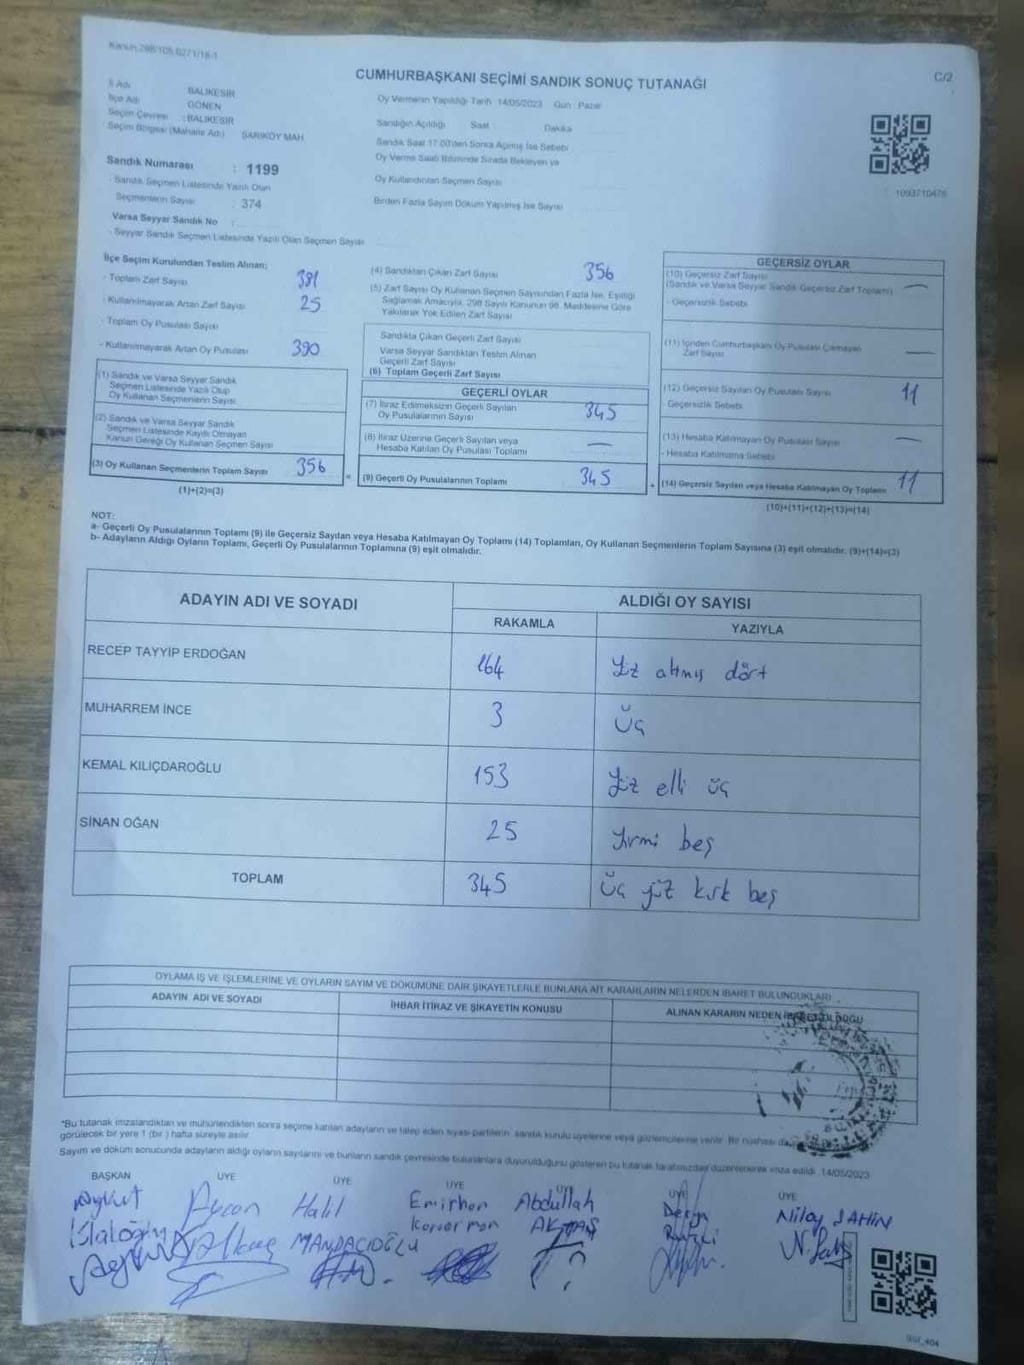 Kanun 298/105
C/2
CUMHURBAŞKANI SEÇİMİ SANDIK SONUÇ TUTANAĞI
İl Adı BALIKESİR
İlçe Adı GÖNEN
Seçim Çevresi : BALIKESİR
Seçim Bölgesi (Mahalle Adı) SARIKÖY MAH
Sandık Numarası : 1199
- Sandık Seçmen Listesinde Yazılı Olan
Seçmenlerin Sayısı : 374
Varsa Seyyar Sandık No :
- Seyyar Sandık Seçmen Listesinde Yazılı Olan Seçmen Sayısı
Oy Vermenin Yapıldığı Tarih 14/05/2023 Gün : Pazar
Sandığın Açıldığı Saat Dakika
Sandık Saat 17.00'den Sonra Açılmış İse Sebebi
Oy Verme Saati Bitiminde Sırada Bekleyen ve
Oy Kullandırılan Seçmen Sayısı
Birden Fazla Sayım Döküm Yapılmış İse Sayısı
1093710476
İlçe Seçim Kurulundan Teslim Alınan;
- Toplam Zarf Sayısı 381
- Kullanılmayarak Artan Zarf Sayısı 25
- Toplam Oy Pusulası Sayısı
- Kullanılmayarak Artan Oy Pusulası 390
(1) Sandık ve Varsa Seyyar Sandık
Seçmen Listesinde Yazılı Olup
Oy Kullanan Seçmenlerin Sayısı
(2) Sandık ve Varsa Seyyar Sandık
Seçmen Listesinde Kayıtlı Olmayan
Kanun Gereği Oy Kullanan Seçmen Sayısı
(3) Oy Kullanan Seçmenlerin Toplam Sayısı 356
(1)+(2)=(3)
(4) Sandıktan Çıkan Zarf Sayısı 356
(5) Zarf Sayısı Oy Kullanan Seçmen Sayısından Fazla İse, Eşitliği
Sağlamak Amacıyla, 298 Sayılı Kanunun 98. Maddesine Göre
Yakılarak Yok Edilen Zarf Sayısı
Sandıkta Çıkan Geçerli Zarf Sayısı
Varsa Seyyar Sandıktan Teslim Alınan
Geçerli Zarf Sayısı
(6) Toplam Geçerli Zarf Sayısı
GEÇERLİ OYLAR
(7) İtiraz Edilmeksizin Geçerli Sayılan
Oy Pusulalarının Sayısı 345
(8) İtiraz Üzerine Geçerli Sayılan veya
Hesaba Katılan Oy Pusulası Toplamı —
= (9) Geçerli Oy Pusulalarının Toplamı 345
GEÇERSİZ OYLAR
(10) Geçersiz Zarf Sayısı
(Sandık ve Varsa Seyyar Sandık Geçersiz Zarf Toplamı) —
- Geçersizlik Sebebi
(11) İçinden Cumhurbaşkanı Oy Pusulası Çıkmayan
Zarf Sayısı —
(12) Geçersiz Sayılan Oy Pusulası Sayısı 11
Geçersizlik Sebebi
(13) Hesaba Katılmayan Oy Pusulası Sayısı —
- Hesaba Katılmama Sebebi
+ (14) Geçersiz Sayılan veya Hesaba Katılmayan Oy Toplamı 11
(10)+(11)+(12)+(13)=(14)
NOT:
a- Geçerli Oy Pusulalarının Toplamı (9) ile Geçersiz Sayılan veya Hesaba Katılmayan Oy Toplamı (14) Toplamları, Oy Kullanan Seçmenlerin Toplam Sayısına (3) eşit olmalıdır. (9)+(14)=(3)
b- Adayların Aldığı Oyların Toplamı, Geçerli Oy Pusulalarının Toplamına (9) eşit olmalıdır.
ADAYIN ADI VE SOYADI ALDIĞI OY SAYISI
RAKAMLA YAZIYLA
RECEP TAYYİP ERDOĞAN 164 Yüz altmış dört
MUHARREM İNCE 3 Üç
KEMAL KILIÇDAROĞLU 153 Yüz elli üç
SİNAN OĞAN 25 Yirmi beş
TOPLAM 345 Üç yüz kırk beş
OYLAMA İŞ VE İŞLEMLERİNE VE OYLARIN SAYIM VE DÖKÜMÜNE DAİR ŞİKAYETLERLE BUNLARA AİT KARARLARIN NELERDEN İBARET BULUNDUKLARI
ADAYIN ADI VE SOYADI İHBAR İTİRAZ VE ŞİKAYETİN KONUSU ALINAN KARARIN NEDEN İBARET OLDUĞU
*Bu tutanak imzalandıktan ve mühürlendikten sonra seçime katılan adayların ve talep eden siyasi partilerin sandık kurulu üyelerine veya gözlemcilerine verilir. Bir nüshası
görülecek bir yere 1 (bir) hafta süreyle asılır.
Sayım ve döküm sonucunda adayların aldığı oyların sayılarını ve bunların sandık çevresinde bulunanlara duyurulduğunu gösteren bu tutanak tarafımızdan düzenlenerek imza edildi. 14/05/2023
BAŞKAN ÜYE ÜYE ÜYE ÜYE ÜYE ÜYE
Aykut Aycan Halil Emirhan Abdullah Nilay ŞAHİN
MANDACIOĞLU AKTAŞ